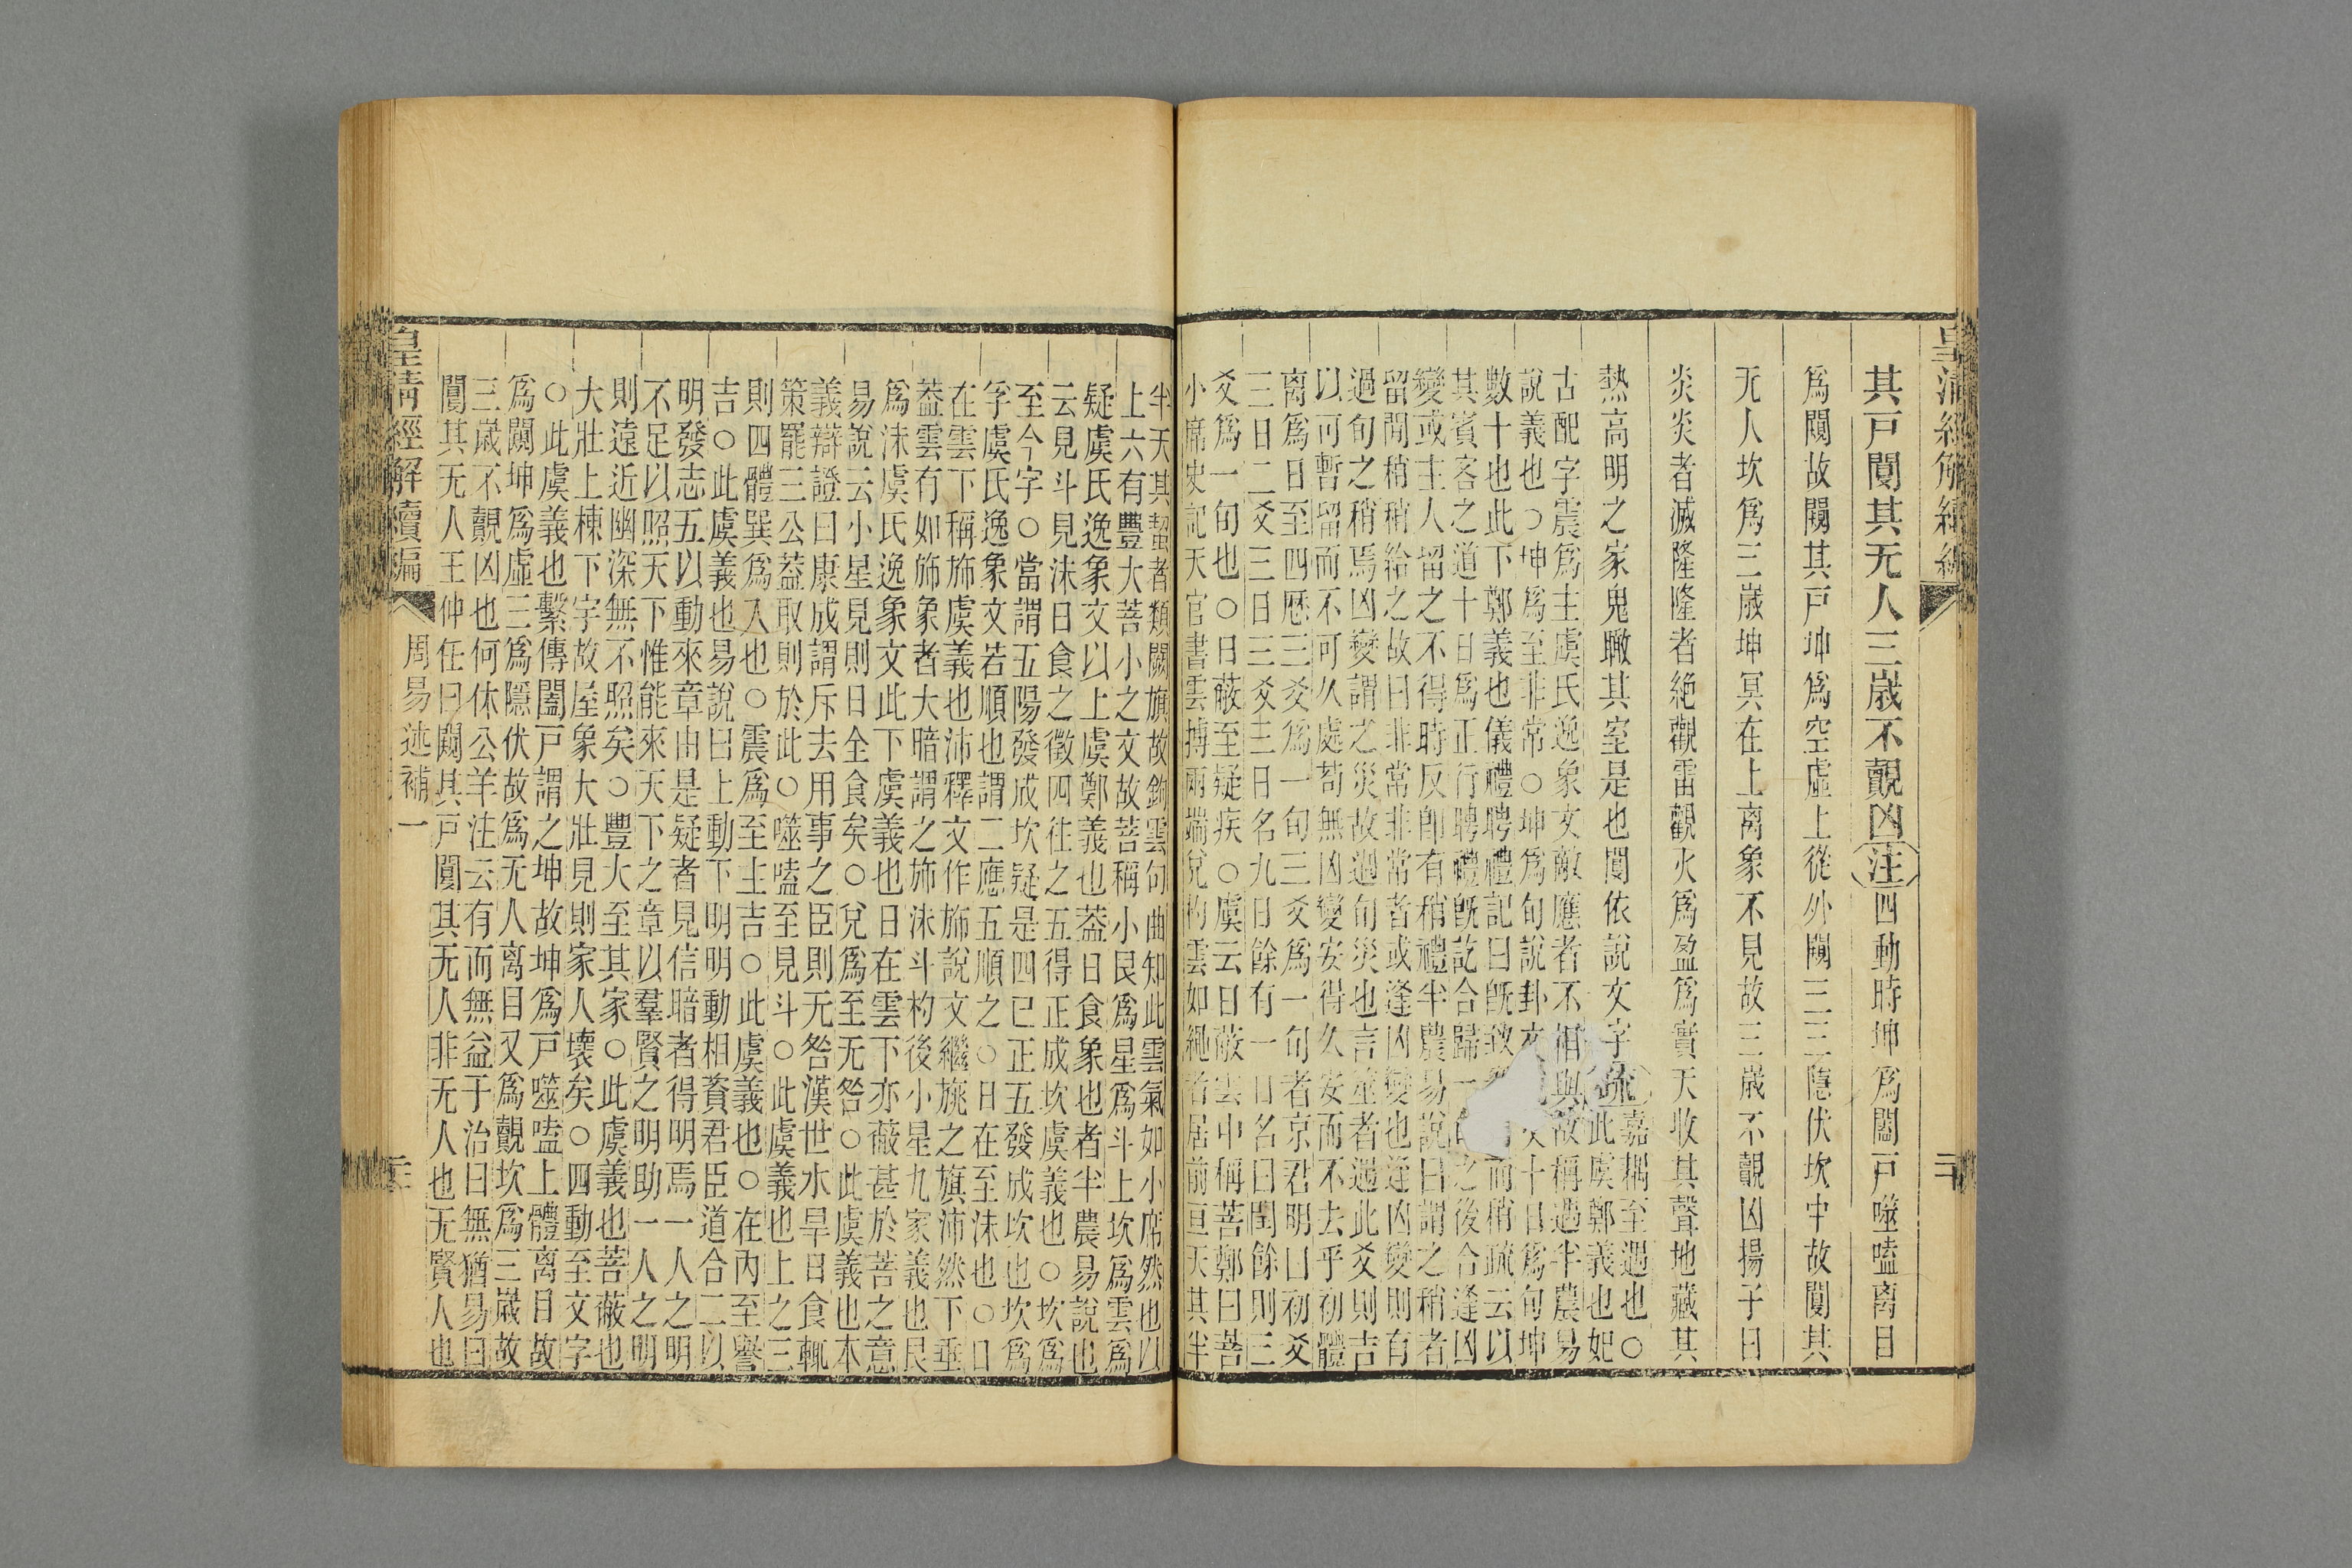 皇清經解續編
其戸闃其无人三歲不覿凶注四動時坤爲闔戸噬嗑离目
爲闚故闚其戸坤爲空虛上從外闚三三隱伏坎中故闃其
无人坎爲三歲坤冥在上离象不見故三歲不覿凶揚子曰
炎炎者滅隆隆者絶觀雷觀火爲盈爲實天收其聲地藏其
熱高明之家鬼瞰其室是也闃依說文字疏
嘉耦至遇也○
此虞鄭義也妃
古配字震爲主虞氏逸象文敵應者不相與故稱遇半農易
說義也○坤爲至非常○坤爲旬說卦文十日爲旬坤
數十也此下鄭義也儀禮聘禮記曰旣致而稍疏云以
其賓客之道十日爲正行聘禮旣訖合歸一之後合逢凶
變或主人留之不得時反卽有稍禮半農易說曰謂之稍者
留閒稍稍給之故曰非常非常者或逢凶變也逢凶變則有
過旬之稍焉凶變謂之災故過旬災也言筮者遇此爻則吉
以可暫留而不可久處苟無凶變安得久安而不去乎初體
离爲日至四歷三爻爲一旬三爻爲一旬者京君明曰初爻
三日二爻三日三爻三日名九日餘有一日名曰閏餘則三
爻爲一旬也○日蔽至疑疾○虞云日蔽雲中稱菩鄭曰菩
小席史記天官書雲摶兩端兌杓雲如繩者居前亘天其半
半天其蛪者類闕旗故鉤雲句曲知此雲氣如小席然也以
上六有豐大菩小之文故菩稱小艮爲星爲斗上坎爲雲爲
疑虞氏逸象文以上虞鄭義也葢日食象也者半農易說也
云見斗見沬日食之徵四往之五得正成坎虞義也○坎爲
至今字○當謂五陽發成坎疑是四已正五發成坎也坎爲
孚虞氏逸象文若順也謂二應五順之○日在至沬也○日
在雲下稱斾虞義也沛釋文作斾說文繼旐之旗沛然下垂
葢雲有如斾象者大暗謂之斾沬斗杓後小星九家義也艮
爲沬虞氏逸象文此下虞義也日在雲下亦蔽甚於菩之意
易說云小星見則日全食矣○兌爲至无咎○此虞義也本
義辯證曰康成謂斥去用事之臣則无咎漢世水旱日食輒
策罷三公葢取則於此○噬嗑至見斗○此虞義也上之三
則四體巽爲入也○震爲至主吉○此虞義也○在內至譽
吉○此虞義也易說曰上動下明明動相資君臣道合二以
明發志五以動來章由是疑者見信暗者得明焉一人之明
不足以照天下惟能來天下之章以羣賢之明助一人之明
則遠近幽深無不照矣○豐大至其家○此虞義也菩蔽也
大壯上棟下宇故屋象大壯見則家人壞矣○四動至文字
○此虞義也繫傳闔戸謂之坤故坤爲戸噬嗑上體离目故
爲闚坤爲虛三爲隱伏故爲无人离目又爲覿坎爲三歲故
三歲不覿凶也何休公羊注云有而無益于治曰無猶易曰
闃其无人王仲任曰闚其戸闃其无人非无人也无賢人也
皇清經解續編
周易述補一